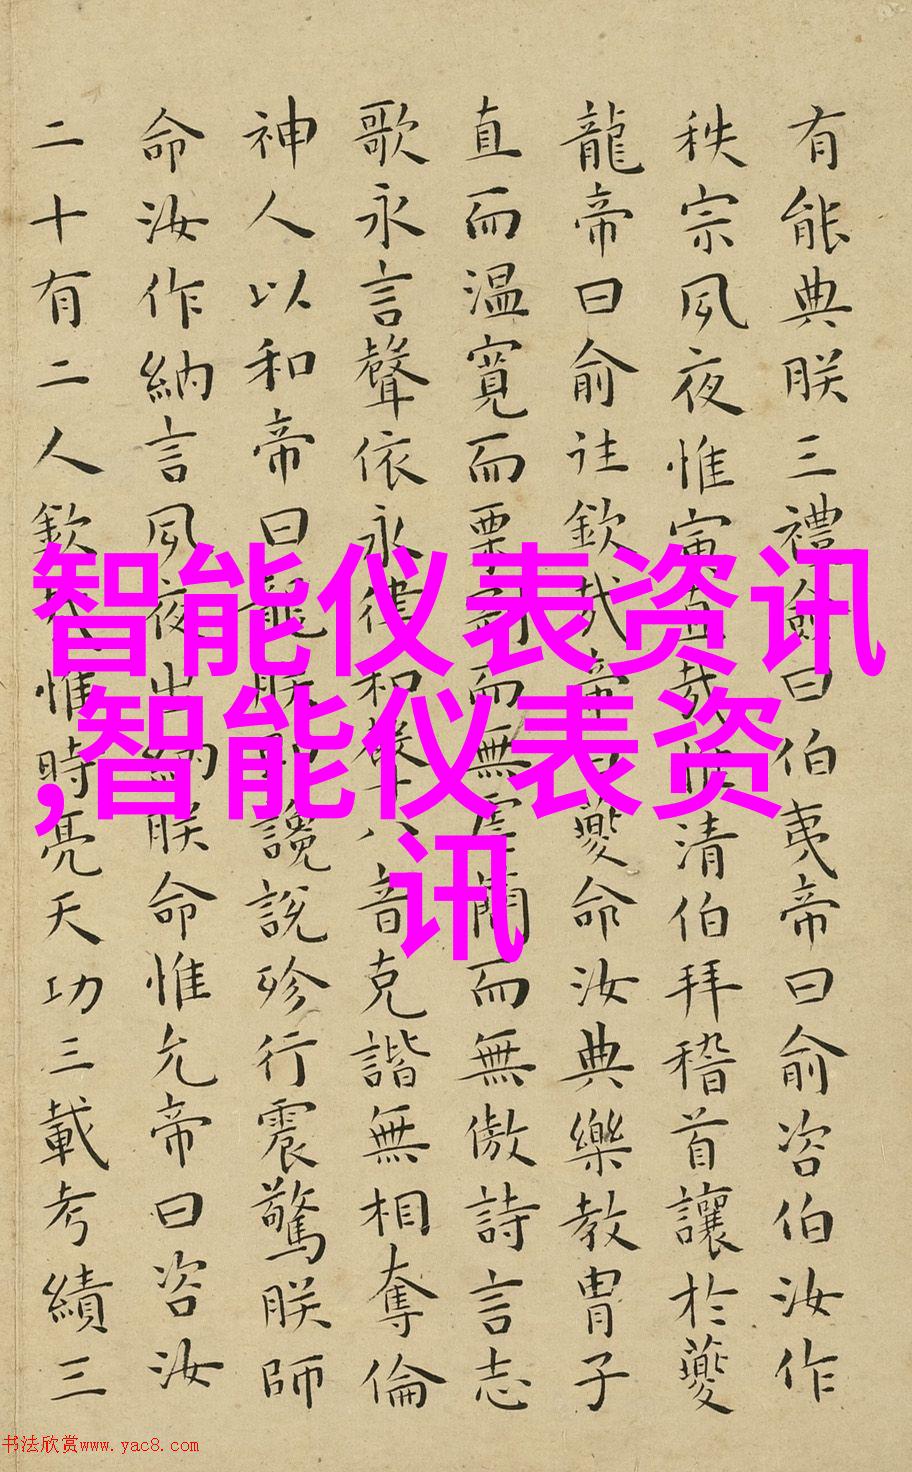 有能典朕三禮僉曰伯夷帝曰俞咨伯汝作
秩宗夙夜惟寅直哉惟清伯拜稽首讓於夔
龍帝曰俞往欽哉帝曰夔命汝典樂教胄子
直而温寬而栗剛而無虐簡而無傲詩言志
歌永言聲依永律和聲八音克諧無相奪倫
神人以和帝曰龍朕讒說殄行震驚朕師
命汝作納言夙夜出納朕命惟允帝曰咨汝
二十有二人欽哉惟時亮天功三載考績三
智能仪表资讯
,智能仪表资
讯
书法欣赏www.yac8.com